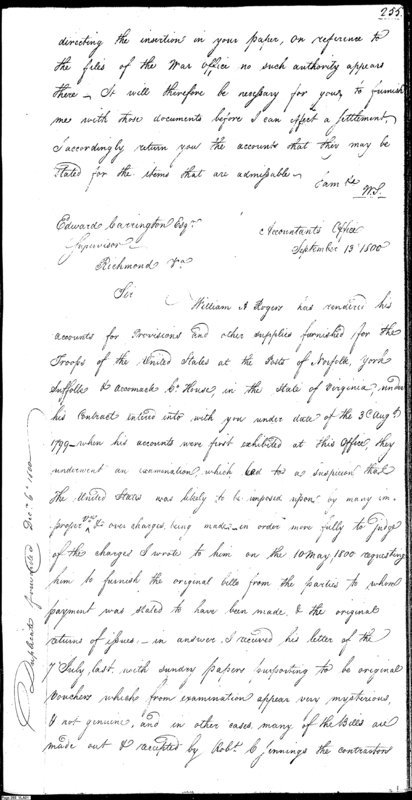 255.
directing the insertion in your paper, on reference to
the files of the War Office no such authority appears
there — It will therefore be necessary for you to furnish
me with those documents before I can effect a settlement,
I accordingly return you the accounts that they may be
stated for the items that are admissable —
I am &c
W.S.
Edward Carrington Esqr.
Supervisor
Richmond Va
Accountants Office
September 13 1800
Sir
William A Rogers has rendered his
accounts for Provisions and other supplies furnished for the
Troops of the United States at the Posts of Norfolk, York
Suffolk & Accomack Ct. House, in the State of Virginia, under
his Contract entered into with you under date of the 3d Augt.
1799 — when his accounts were first exhibited at this Office, they
underwent an examination, which led to a suspicion that
the United States was likely to be imposed upon by many im-
proper & over charges, being made — in order more fully to judge
of the charges I wrote to him on the 10 May, 1800 requesting
him to furnish the original bills from the parties to whom
payment was stated to have been made, & the original
returns of issues — in answer, I received his letter of the
7 July last, with sundry papers purporting to be original
Vouchers which from examination appear very mysterious,
& not genuine, and in other cases, many of the Bills are
made out & receipted by Robt. C Jennings the contractors
Duplicate forwarded Decr. 6th 1800